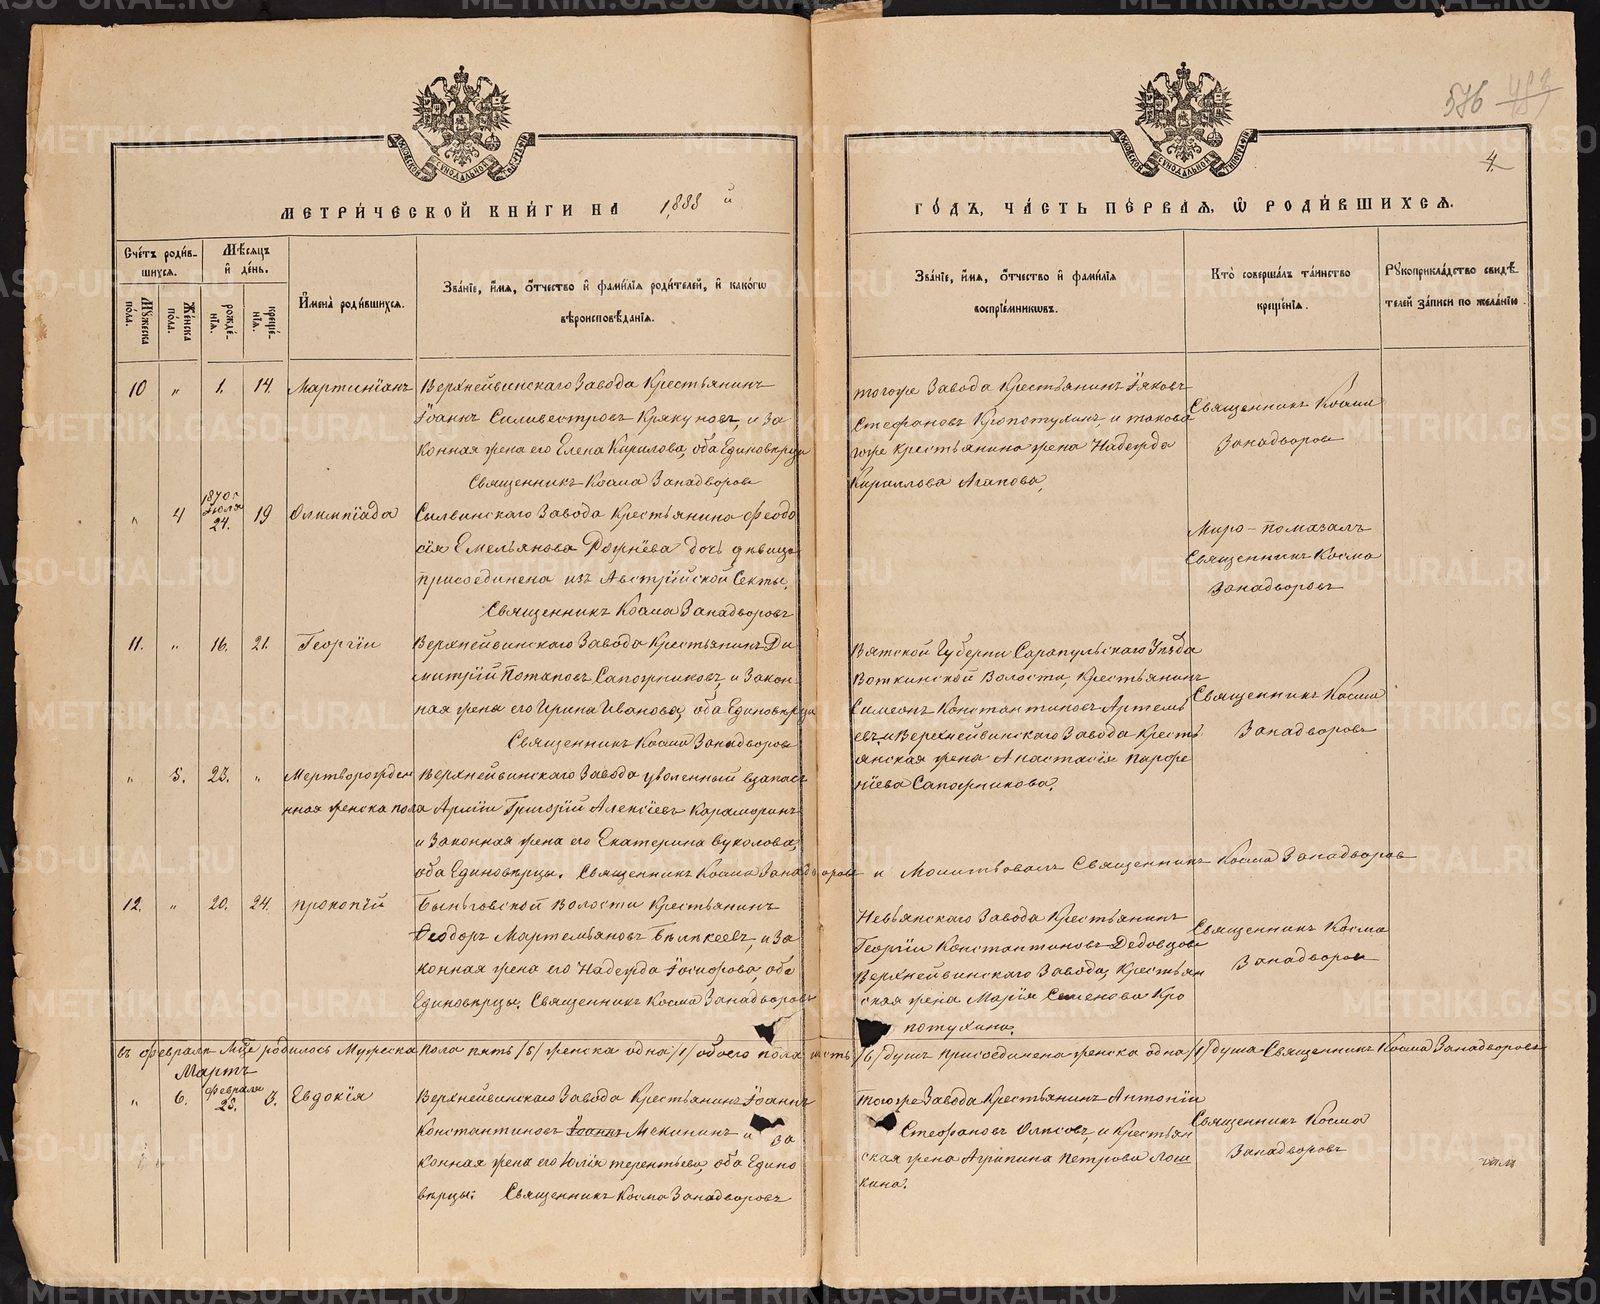 576 483
4.
МЕТРИЧЕСКОЙ КНИГИ НА 1888 й
ГОДЪ, ЧАСТЬ ПЕРВАЯ, Ѡ РОДИВШИХСЯ.
Счетъ родившихся.
Мужеска пола.
Женска пола.
Мѣсяцъ и день.
рожденія.
крещенія.
Имена родившихся.
Званіе, имя, отчество и фамилія родителей, и какогѡ
вѣроисповѣданія.
Званіе, имя, отчество и фамилія
воспріемниковъ.
Кто совершалъ таинство
крещенія.
Рукоприкладство свидѣ-
телей записи по желанію.
10 " 1. 14. Мартиніанъ
Верхнейвинскаго Завода Крестьянинъ
Іоаннъ Силивестровъ Крякуновъ, и за
конная жена его Елена Кирилова, оба Единовѣрцы
Священникъ Косма Западворовъ
тогоже Завода Крестьянинъ Іяковъ
Стефановъ Кропотухинъ, и таково
гоже крестьянина жена Надежда
Кириллова Агапова,
Священникъ Косма
Западворовъ
" 4 1870 г Іюля 24. 19 Олимпіада
Сылвинскаго Завода Крестьянина Феодо
сія Емельянова Рожнева дочь дѣвица
присоединена изъ Австрійской Секты.
Священникъ Косма Западворовъ
Миро-помазалъ
Священникъ Косма
Западворовъ
11. " 16. 21. Георгіи
Верхнейвинскаго Завода Крестьянинъ Ди
митрій Потаповъ Сапожниковъ, и Закон
ная жена его Ирина Иванова, оба Единовѣрцы
Священникъ Косма Западворовъ
Вятской Губерни Сарапульскаго Уѣзда
Воткинской Волости, Крестьянинъ
Симеонъ Константиновъ Артемь
евъ и Верхнейвинскаго Завода Кресть
янская жена Анастасія Парфе
ніева Сапожникова.
Священникъ Косма
Западворовъ
" 5. 23. " Мертворожден
ная женска пола
Верхнейвинскаго Завода уволенный взапасъ
Арміи Григорій Алексіевъ Караморинъ
и Законная жена его Екатерина Вуколова,
оба Единовѣрцы. Священникъ Косма Западворовъ и Молитвовалъ Священникъ Косма Западворовъ
12. " 20. 24. прокопій
Быньговской Волости Крестьянинъ
Ѳеодоръ Мартемьяновъ Бѣлкеевъ, и за
конная жена его Надежда Іосифова, оба
Единовѣрцы. Священникъ Косма Западворовъ
Невьянскаго Завода Крестьянинъ
Георгіи Константиновъ Дедовцовъ
Верхнейвинскаго Завода, Крестьян
ская жена Марія Семенова Кро
потухина.
Священникъ Косма
Западворовъ
въ февралѣ Мцѣ родилось Мужеска пола пять /5/ женска одна /1/ обоего пола шесть /6/ душъ присоединена женска одна /1/ душа Священникъ Косма Западворовъ
Мартъ
" 6. февраля 28. 3. Евдокія
Верхнейвинскаго Завода Крестьянинъ Іоаннъ
Константиновъ Іоаннъ Мекининъ и за
конная жена его Юлія терентьева, оба Едино
вѣрцы. Священникъ Косма Западворовъ
Тогоже Завода Крестьянинъ Антоніи
Стефановъ Олисовъ, и Крестьян
ская жена Агрипина петрова Лош
кина.
Священникъ Косма
Западворовъ
METRIKI.GASO-URAL.RU